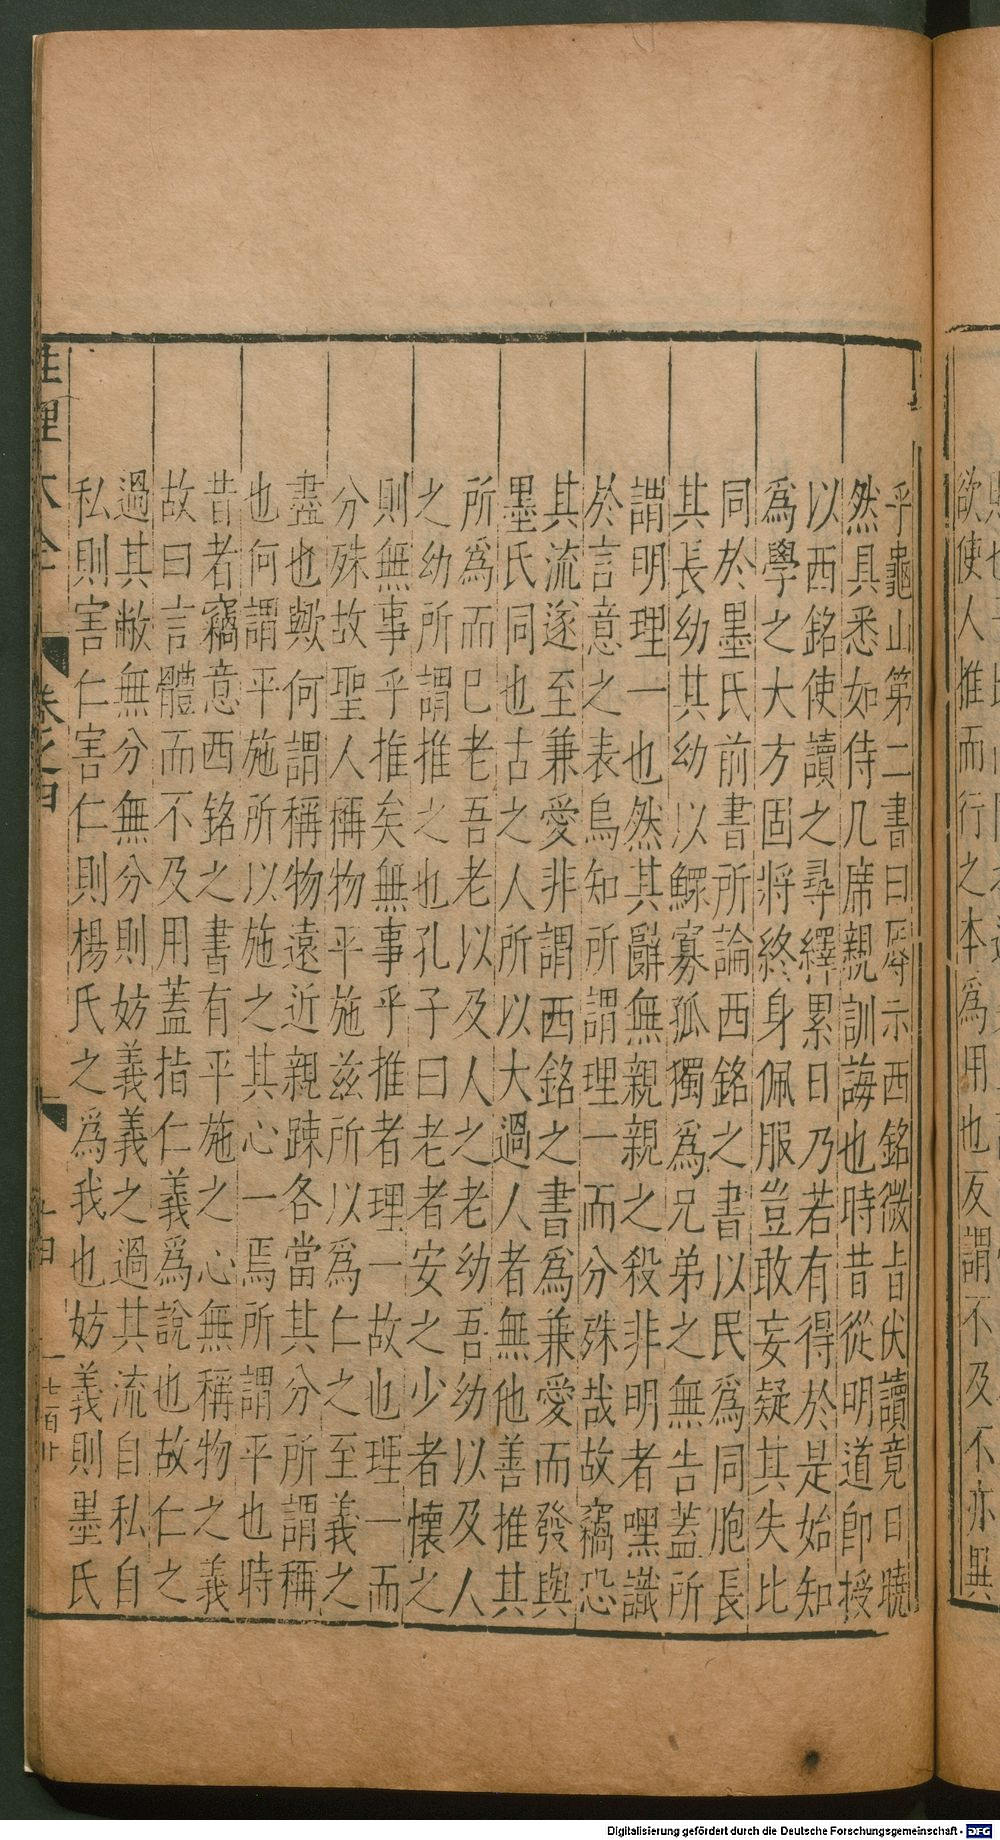 欲使人推而行之本爲用也反謂不及不亦異
乎龜山第二書曰辱示西銘微旨伏讀竟日曉
然具悉如侍几席親訓誨也時昔從明道卽授
以西銘使讀之尋繹累日乃若有得於是始知
爲學之大方固將終身佩服豈敢妄疑其失比
同於墨氏前書所論西銘之書以民爲同胞長
其長幼其幼以鰥寡孤獨爲兄弟之無告蓋所
謂明理一也然其辭無親親之殺非明者嘿識
於言意之表烏知所謂理一而分殊哉故竊恐
其流遂至兼愛非謂西銘之書爲兼愛而發與
墨氏同也古之人所以大過人者無他善推其
所爲而巳老吾老以及人之老幼吾幼以及人
之幼所謂推之也孔子曰老者安之少者懷之
則無事乎推矣無事乎推者理一故也理一而
分殊故聖人稱物平施兹所以爲仁之至義之
盡也歟何謂稱物遠近親踈各當其分所謂稱
也何謂平施所以施之其心一焉所謂平也時
昔者竊意西銘之書有平施之心無稱物之義
故曰言體而不及用蓋指仁義爲說也故仁之
過其敝無分無分則妨義義之過其流自私自
私則害仁害仁則楊氏之爲我也妨義則墨氏
性理大全 卷之四 十四
Digitalisierung gefördert durch die Deutsche Forschungsgemeinschaft - DFG